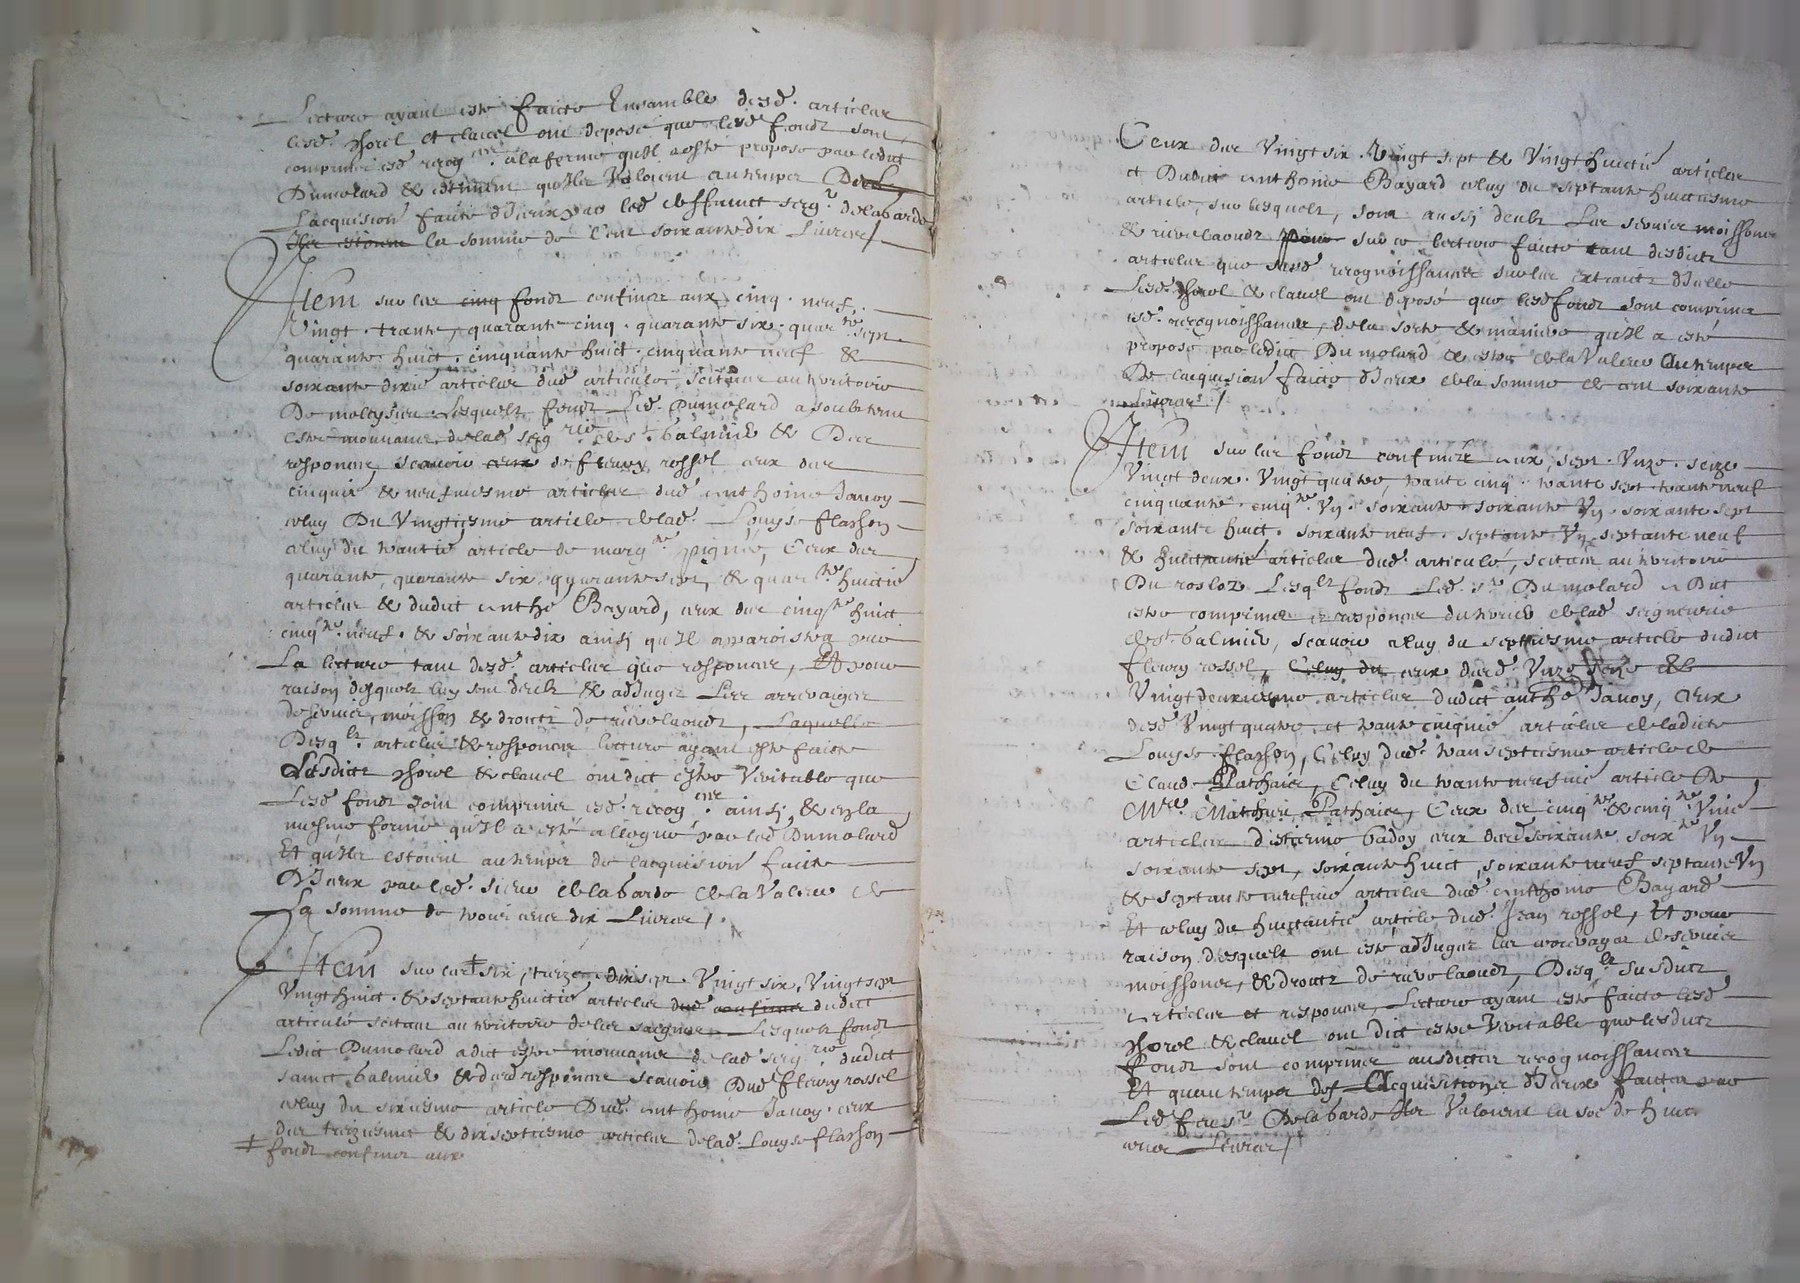 Lecture ayant esté faicte Ensamble desd. articles
lesd. Horel et clavel ont deposé que lesd fondz sont
comprins esd. recog.ces a la forme qu'Il a esté proposé par ledict
Dumolard & estiment qu'Iltz Valoient au temper
L'acquision faicte d'Iceux par led deffunct seig.r delabarde
Iltz estoient la somme de Cent soixante dix Livres /
Item sur les cinq fondz confinez aux cinq. neuf.
Vingt. trante, quarante cinq. quarante six. quar.te sept
quarante huict. cinquante huict. cinquante neuf &
soixante dixié articles dud. articulé, scituez au territoire
De lesquelz fondz Led. Dumolard a soubstenu
estre mouvants de lad seig.rie de S.t Galmier & Des
responces, scavoir ceux de fleury rossel ceux des
cinquié & neufviesme articles dud. anthoine Javoy
celuy Du Vingtiesme article de lad. Louyse flasson
celuy du trantié article de marg.te pignié, Ceux des
quarante, quarante six, quarante sept, & quar.te huictié
articles & dudict anthe Bayard, ceux des cinq.te huict
cinq.te neuf. & soixante dix ainsy qu'Il apparoistra par
La lecture tant desd. articles que responces, Et pour
raison desquelz luy sont deubz & adJugez Les arreraiges
de servics, moisson & droictz de rieve laoudz, Laquelle
Desq.lz articles & responces lecture ayant esté faicte
Lesdictz Horel & clavel ont dict estre Veritable que
Lesd fondz sont comprins esd. recog.ces ainsy & en la
mesme forme qu'Il a esté allegué par led Dumolard
Et qu'Ilz estoient au temps de lacquision faicte
D'Iceux par led. sieur de la barde de la Valeur de
La somme de trois cens dix Livres /.
Item sur les ‡ six, treize, dix sept. Vingt six, Vingt sept
Vingt huict. & septante huictié articles dud confinez dudict
articulé scituez au territoire de les saignes Lesquelz fondz
Ledict Dumolard a dict estre mouvants de lad seig.rie dudict
sainct Galmier & desd responces scavoir Dud fleury rossel
celuy du sixiesme article Dud. anthoine Javoy. ceux
des treiziesme & dix septiesme articles de lad. Louyse flasson
‡ fondz confinez aux
Ceux des Vingt six. Vingt sept & Vingt huictié articles
et Dudict anthoine Bayard celuy du septante huictiesme
article, sur lesquelz, sont aussy deubz Les servics moissons
& rieve laoudz pour sur ce lecture faicte tant desdictz
articles que desd recognoissances sur les extraictz d'Icelle
Lesd. Horel & clavel ont deposé que lesd fondz sont comprins
esd. recognoissances, de la sorte & maniere qu'Il a esté
proposé par ledict Dumolard & estre de la Valeur Au temps
De lacquision faicte d'Iceux de la somme de cent soixante
Livres /
Item sur les fondz confinéz aux, sept. Unze. seize
Vingt deux. Vingt quatre, trante cinq. trante sept. trante neuf
cinquante. cinq.te Un. soixante. soixante Un. soixante sept
soixante huict. soixante neuf. septante Un. septante neuf
& huictantié articles dud. articulé, scituez au territoire
Du Lesq.lz fondz Led. s.r Dumolard a Dict
estre comprins & responces du terrier de lad seigneurie
de S.t Galmier, scavoir celuy du septiesme article dudict
fleury rossel, Celuy du ceux desd. Unze seize &
Vingt deuxiesme articles dudict anthe Javoy, ceux
desd Vingt quatre et trante cinquié articles de ladicte
Louyse flasson, Celuy dud. tran septiesme article de
Claude Pathaier, Celuy du trante neufvié article De
M.re Mathieu Pathaier, Ceux des cinq.te & cinq.te Unié
articles d'estienne Gadoy ceux desd soixante soix.te Un
soixante sept, soixante huict, soixante neuf septante Un
& septante neufvié articles dud. anthoine Bayard
Et celuy du huictantié article dud. Jean rossel, Et pour
raison desquelz ont esté adJugez les arreraiges de servics
moissons, & droictz de rieve laoudz, Desq.lz susdictz
articles et responces, Lecture ayant esté faicte lesd
Horel & clavel ont dict estre Veritable que lesdictz
fondz sont comprins ausdictes recognoissances
Et quau temps des Acquisitions d'Iceux faictes par
Led feu s.r Delabarde Iltz Valoient la so.e de huict
cens Livres /